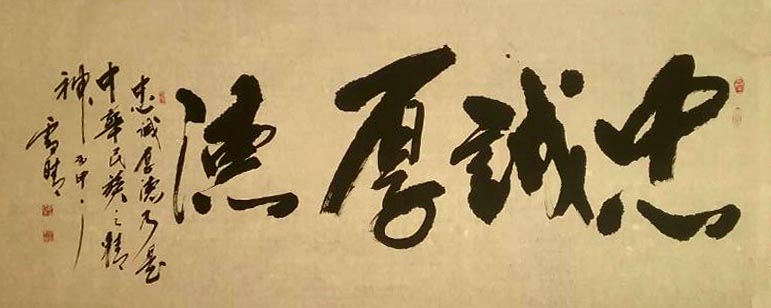 忠誠厚德
忠誠厚德乃是
中華民族之精
神 丙申
雪晴